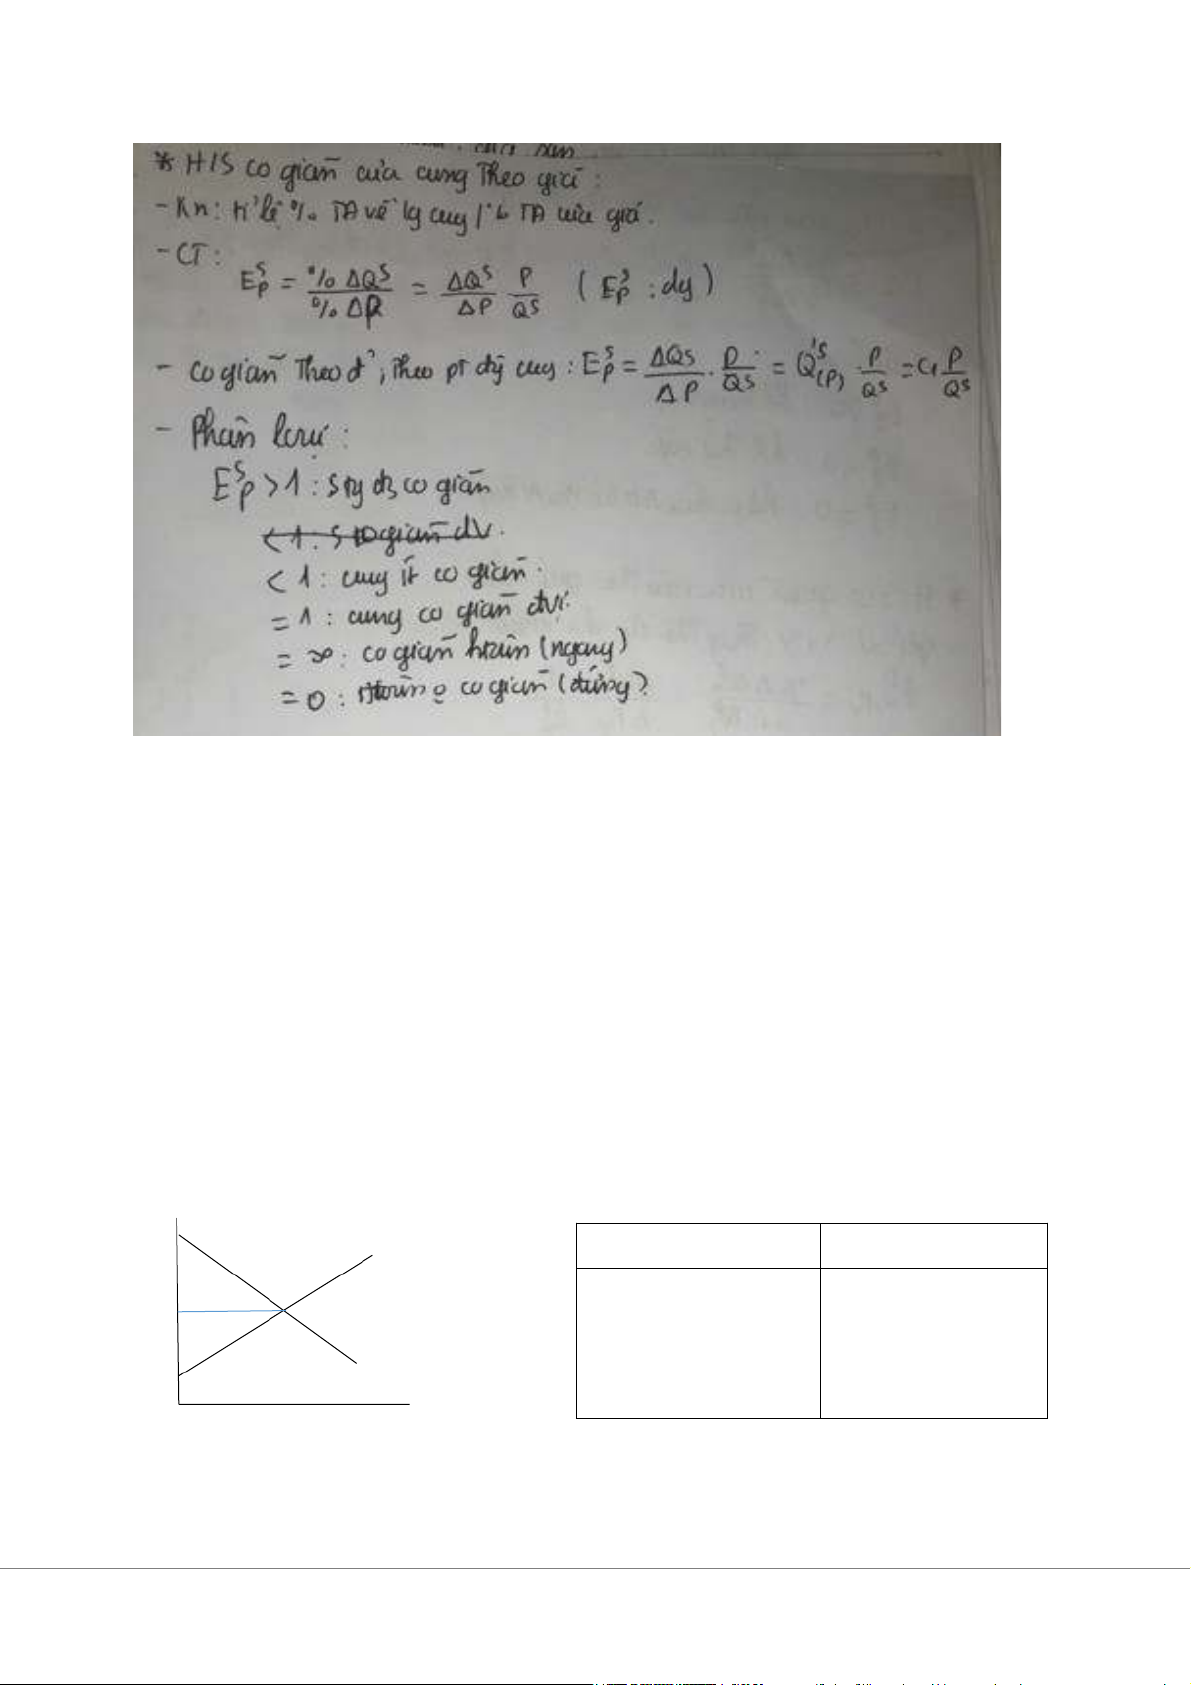 * H/S co giãn của cung theo giá:
- Kn: tỉ lệ % TĐ về lg cung / % TĐ của giá.
- CT:
E^S_P = %ΔQ^S / %ΔP = ΔQ^S/ΔP P/QS (E^S_P: dg)
- co giãn theo đ', theo pt đg cung: E^S_P = ΔQS/ΔP . P/QS = Q'^S_(P) P/QS = c₁ P/QS
- Phân loại:
E^S_P > 1: S co giãn
< 1: S co giãn đv.
< 1: cung ít co giãn.
= 1: cung co giãn đvị.
= ∞: co giãn hoàn (ngang)
= 0: co giãn (đứng)